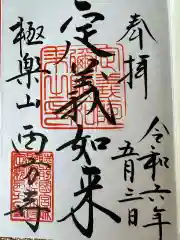 奉拝
令和六年
五月三日
定義如来
極楽山西方寺